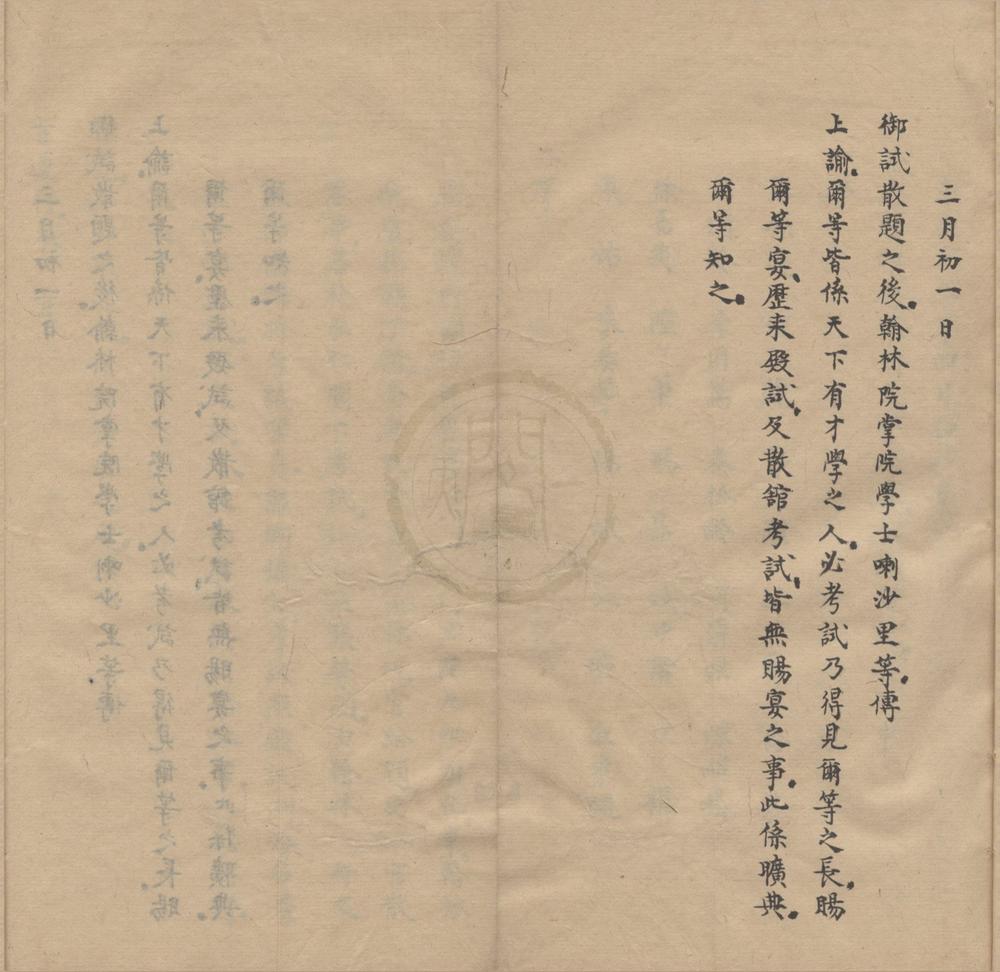 三月初一日
御試散題之後翰林院掌院學士喇沙里等傳
上諭爾等皆係天下有才學之人必考試乃得見爾等之長賜
爾等宴歷來殿試及散館考試皆無賜宴之事此係曠典
爾等知之